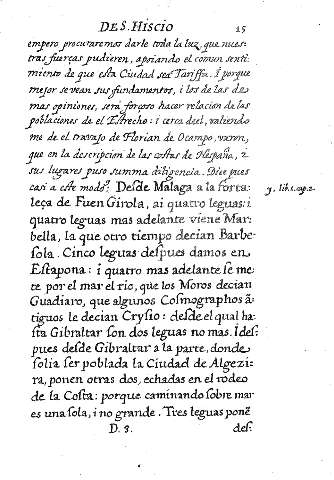 DE S. HISCIO 15
empero procuraremos darle toda la luz, que nues-
tras fuerças pudieren, apoiando el comun senti-
miento de que esta Ciudad sea Tariffa. I porque
mejor se vean sus fundamentos, i los de las de-
mas opiniones, será forçoso hacer relacion de las
poblaciones de el Estrecho: i cerca del, valiendo
me de el travajo de Florian de Ocampo, varon,
que en la descripcion de las costas de Hespaña, i
sus lugares puso summa diligencia. Dice pues
casi a este modo. Desde Malaga a la forta-
leça de Fuen Girola, ai quatro leguas: i
quatro leguas mas adelante viene Mar-
bella, la que otro tiempo decian Barbe-
sola. Cinco leguas despues damos en
Estapona: i quatro mas adelante se me-
te por el mar el rio, que los Moros decian
Guadiaro, que algunos Cosmographos ã-
tiguos le decian Crysio: desde el qual ha-
sta Gibraltar son dos leguas no mas. I des-
pues desde Gibraltar a la parte, donde
solia ser poblada la Ciudad de Algezi-
ra, ponen otras dos, echadas en el rodeo
de la Costa: porque caminando sobre mar
es una sola, i no grande. Tres leguas ponẽ
D. 8. des-
g. lib.1.cap.2.